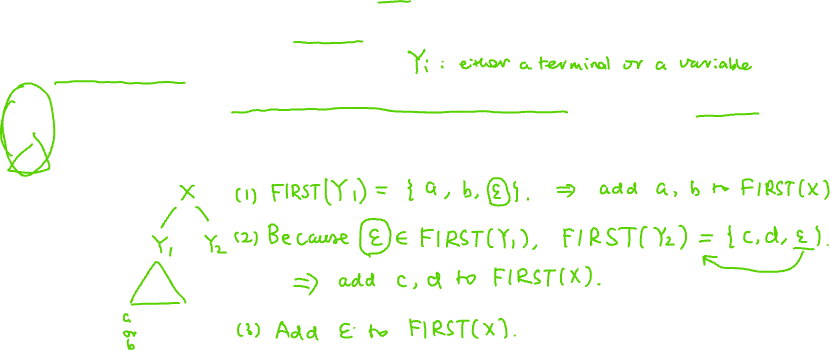 Yi : either a terminal or a variable
X
(1) FIRST(Y1) = { a, b, ε }. ⇒ add a, b to FIRST(X)
Y1 Y2
(2) Because ε ∈ FIRST(Y1), FIRST(Y2) = { c, d, ε }.
⇒ add c, d to FIRST(X).
a
or
b
(3) Add ε to FIRST(X).